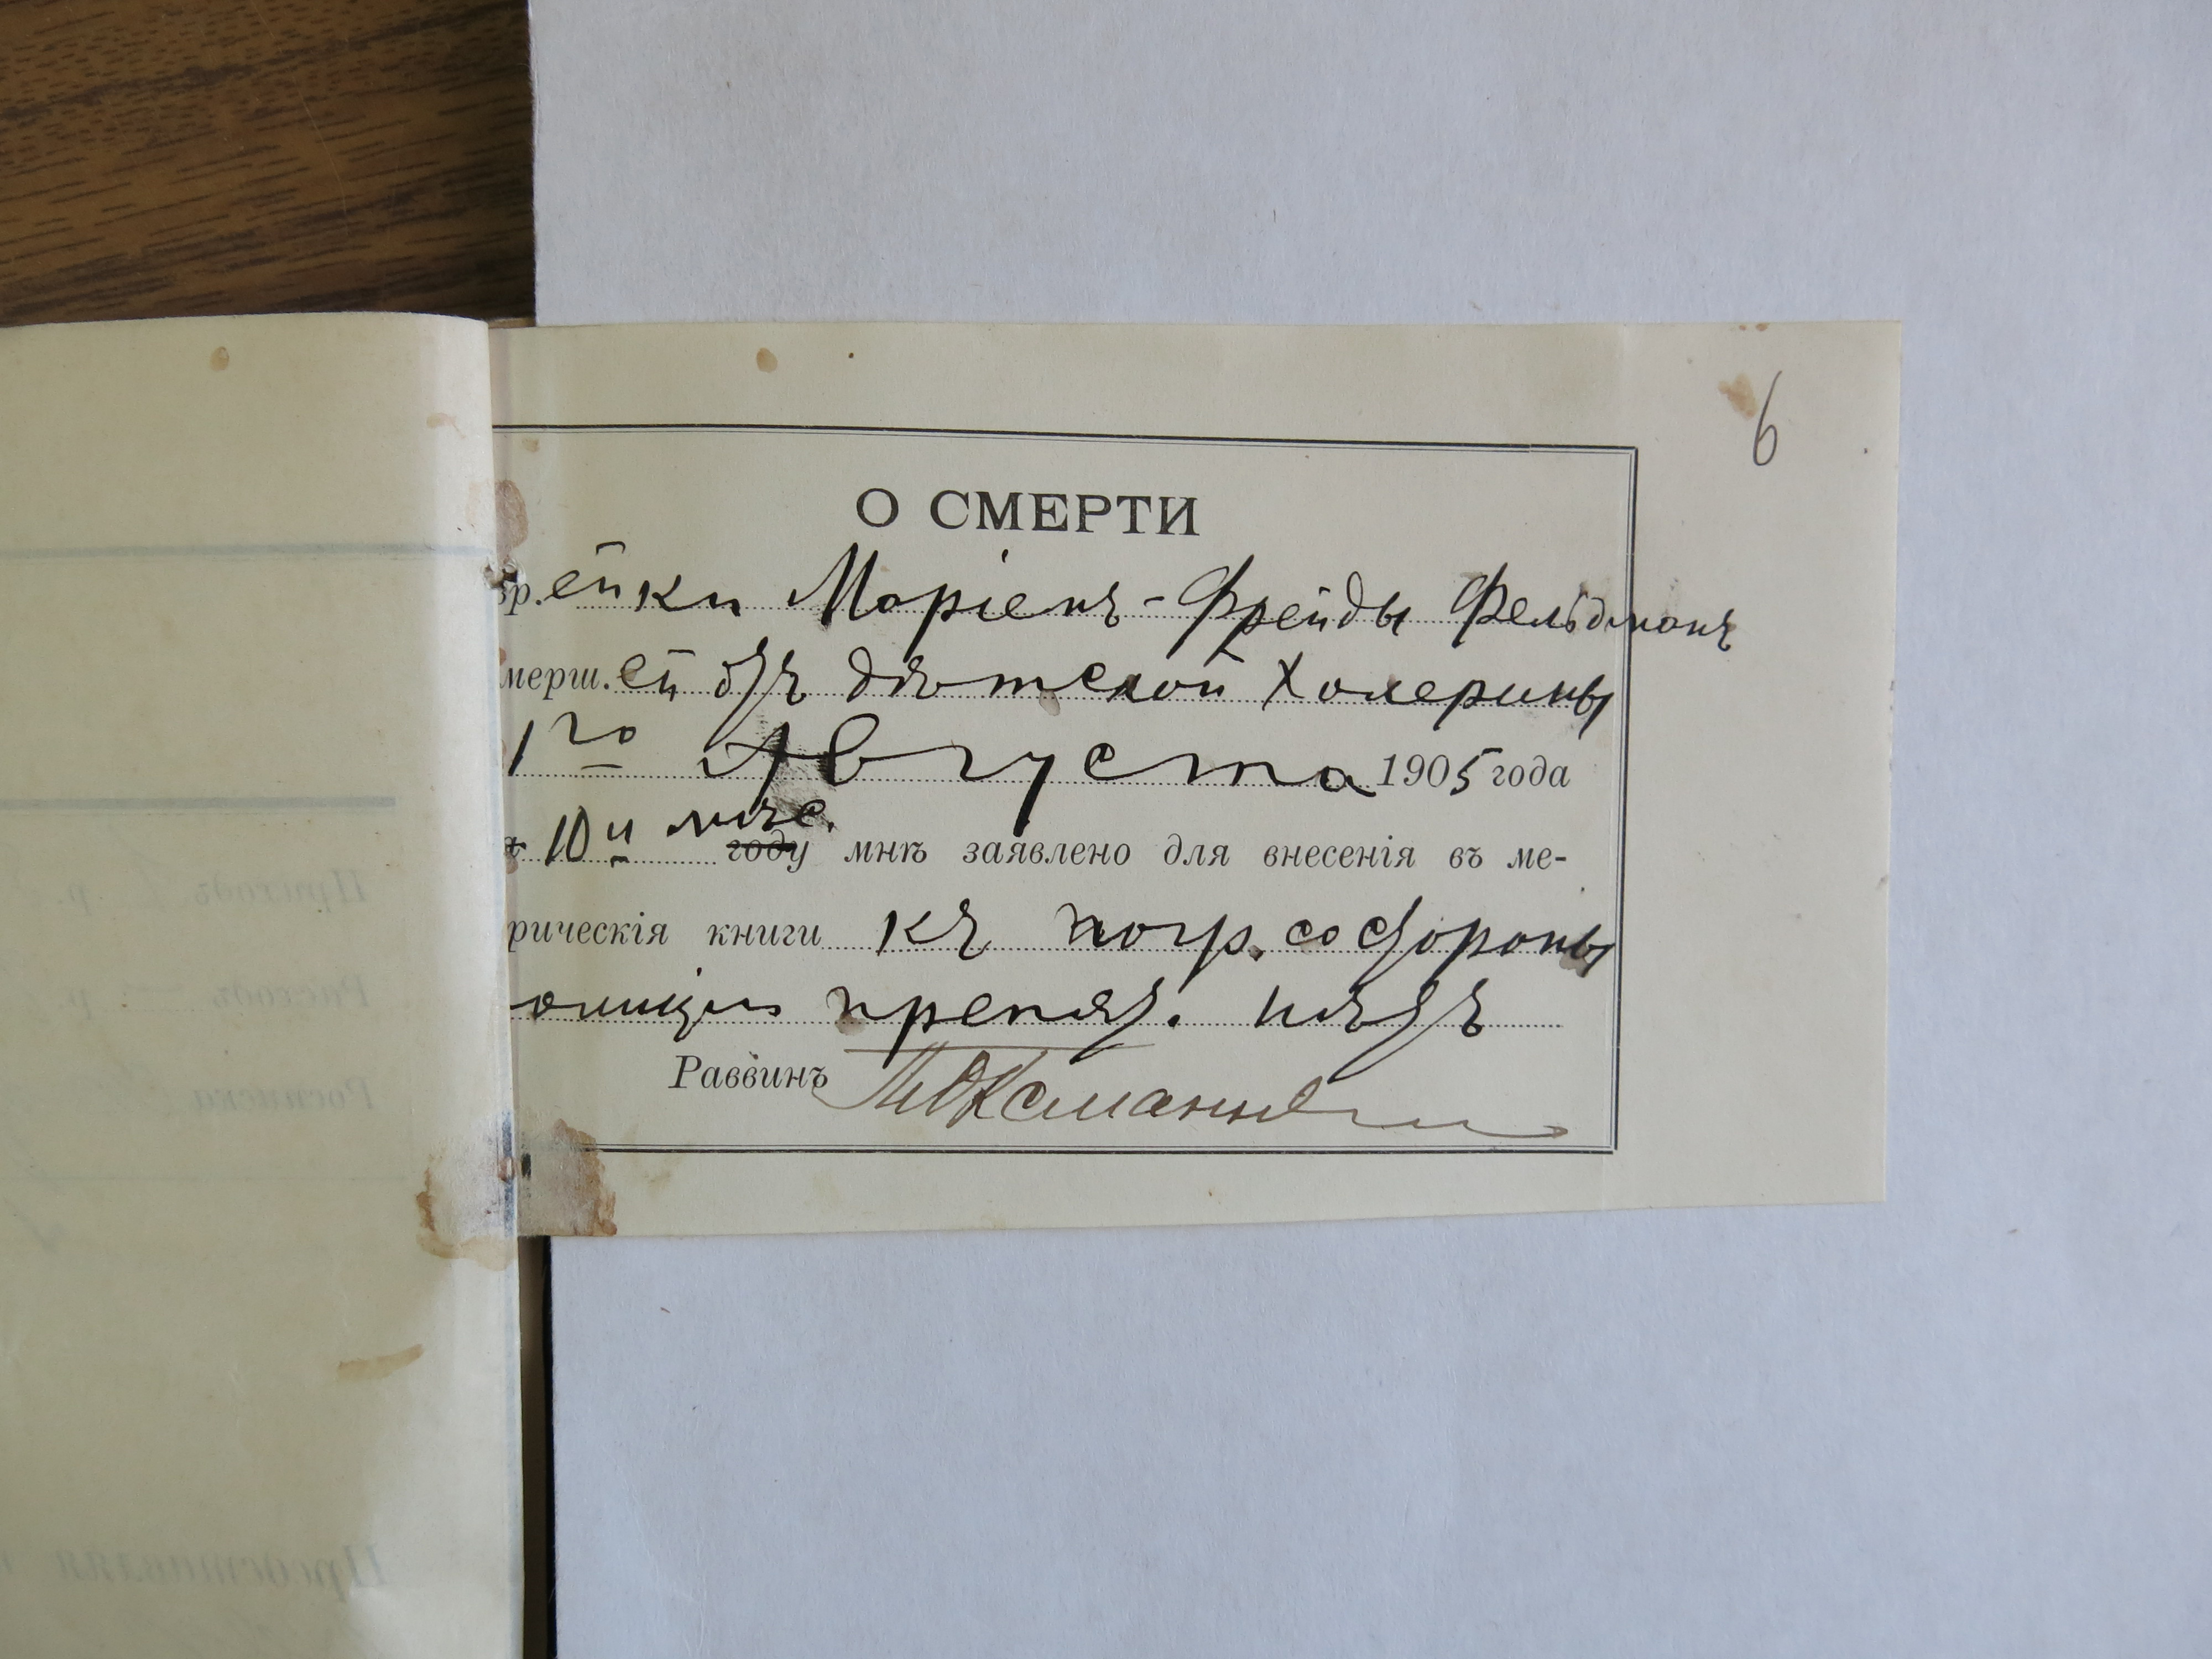 6
О СМЕРТИ
вр.ейки Маріемъ-Фрейды Фельдманъ
мерш.ей отъ дѣтской холерины
1го Августа 1905 года
10и мѣс.
году мнѣ заявлено для внесенія въ ме-
рическія книги къ погр. со стороны
олиціи препят. нѣтъ
Раввинъ
Приходъ р.
Расходъ р.
Росписка
Представляя